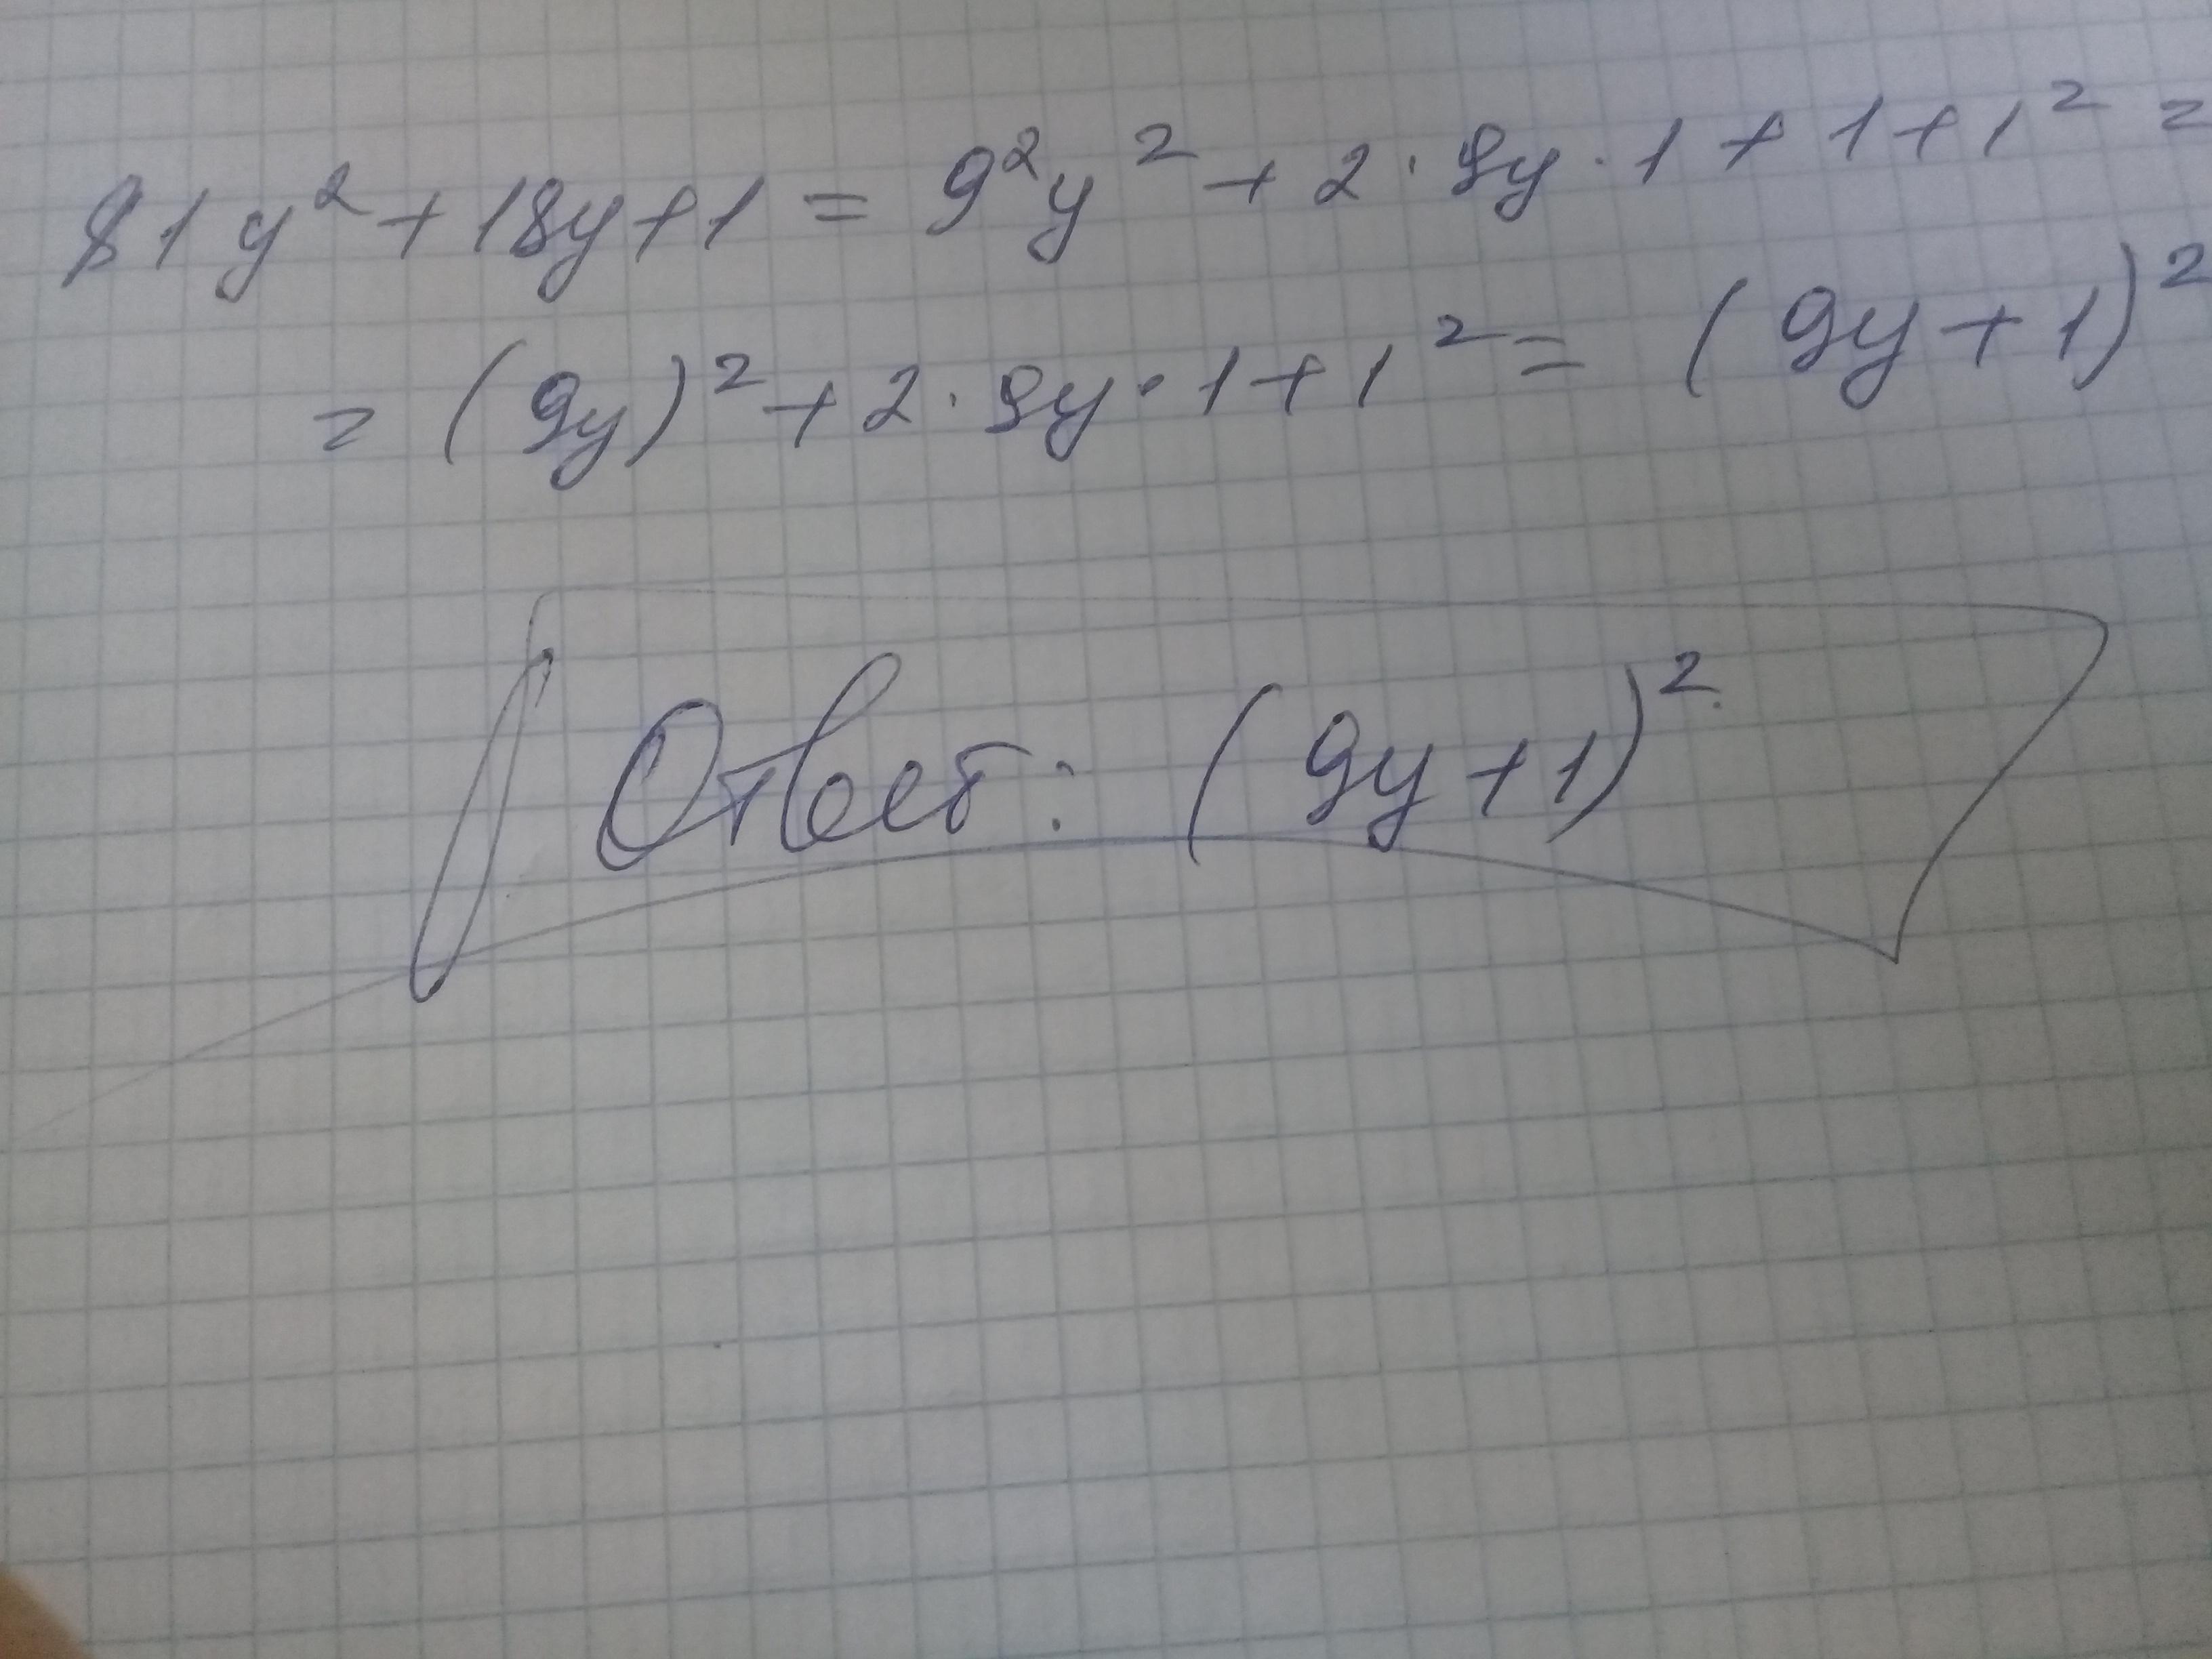 81y² + 18y + 1 = 9²y² + 2 · 9y · 1 + 1 + 1² =
= (9y)² + 2 · 9y · 1 + 1² = (9y + 1)²
Ответ: (9y + 1)².